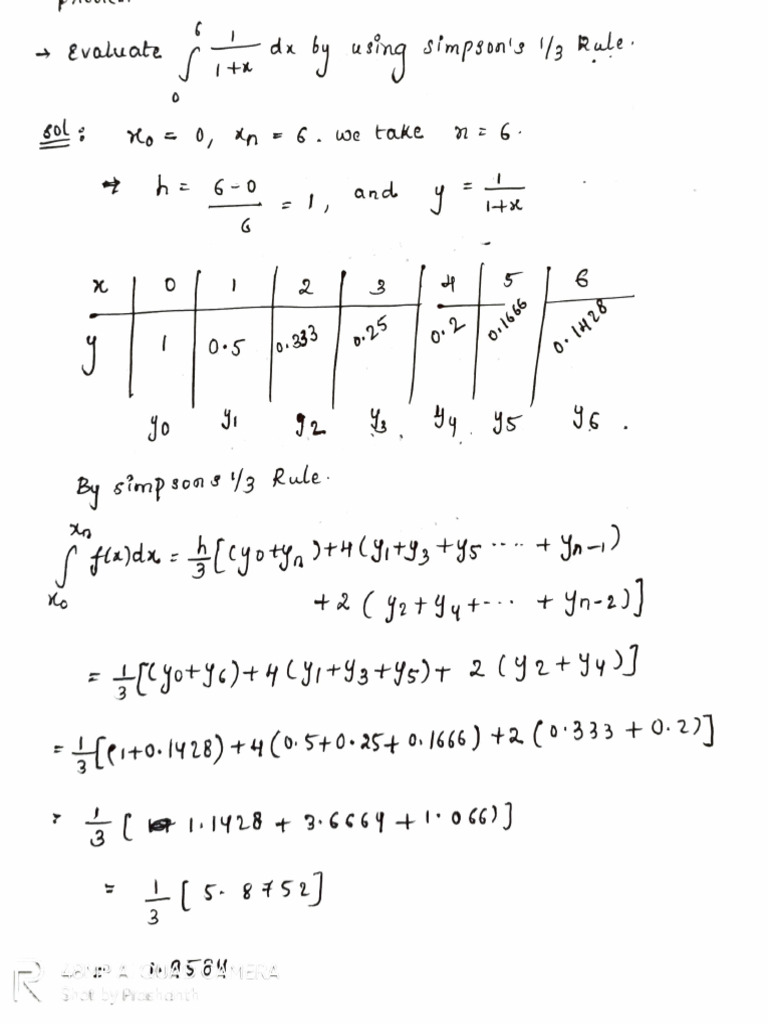 → Evaluate ∫₀⁶ 1/(1+x) dx by using simpson's 1/3 Rule.
sol: x0 = 0, xn = 6. we take n = 6.
→ h = (6-0)/6 = 1, and y = 1/(1+x)
x | 0 | 1 | 2 | 3 | 4 | 5 | 6
y | 1 | 0.5 | 0.333 | 0.25 | 0.2 | 0.1666 | 0.1428
y0 y1 y2 y3. y4. y5 y6.
By simpsons 1/3 Rule.
∫ₓ₀ˣⁿ f(x)dx = h/3 [(y0+yn)+4(y1+y3+y5 ..... + yn-1)
+2(y2+y4+-... + yn-2)]
= 1/3 [(y0+y6)+4(y1+y3+y5)+ 2(y2+y4)]
= 1/3 [(1+0.1428)+4(0.5+0.25+0.1666)+2(0.333+0.2)]
= 1/3 [1.1428 + 3.6664 + 1.066)]
= 1/3 [5.8752]
= 1.9584
Shot by Prashanth